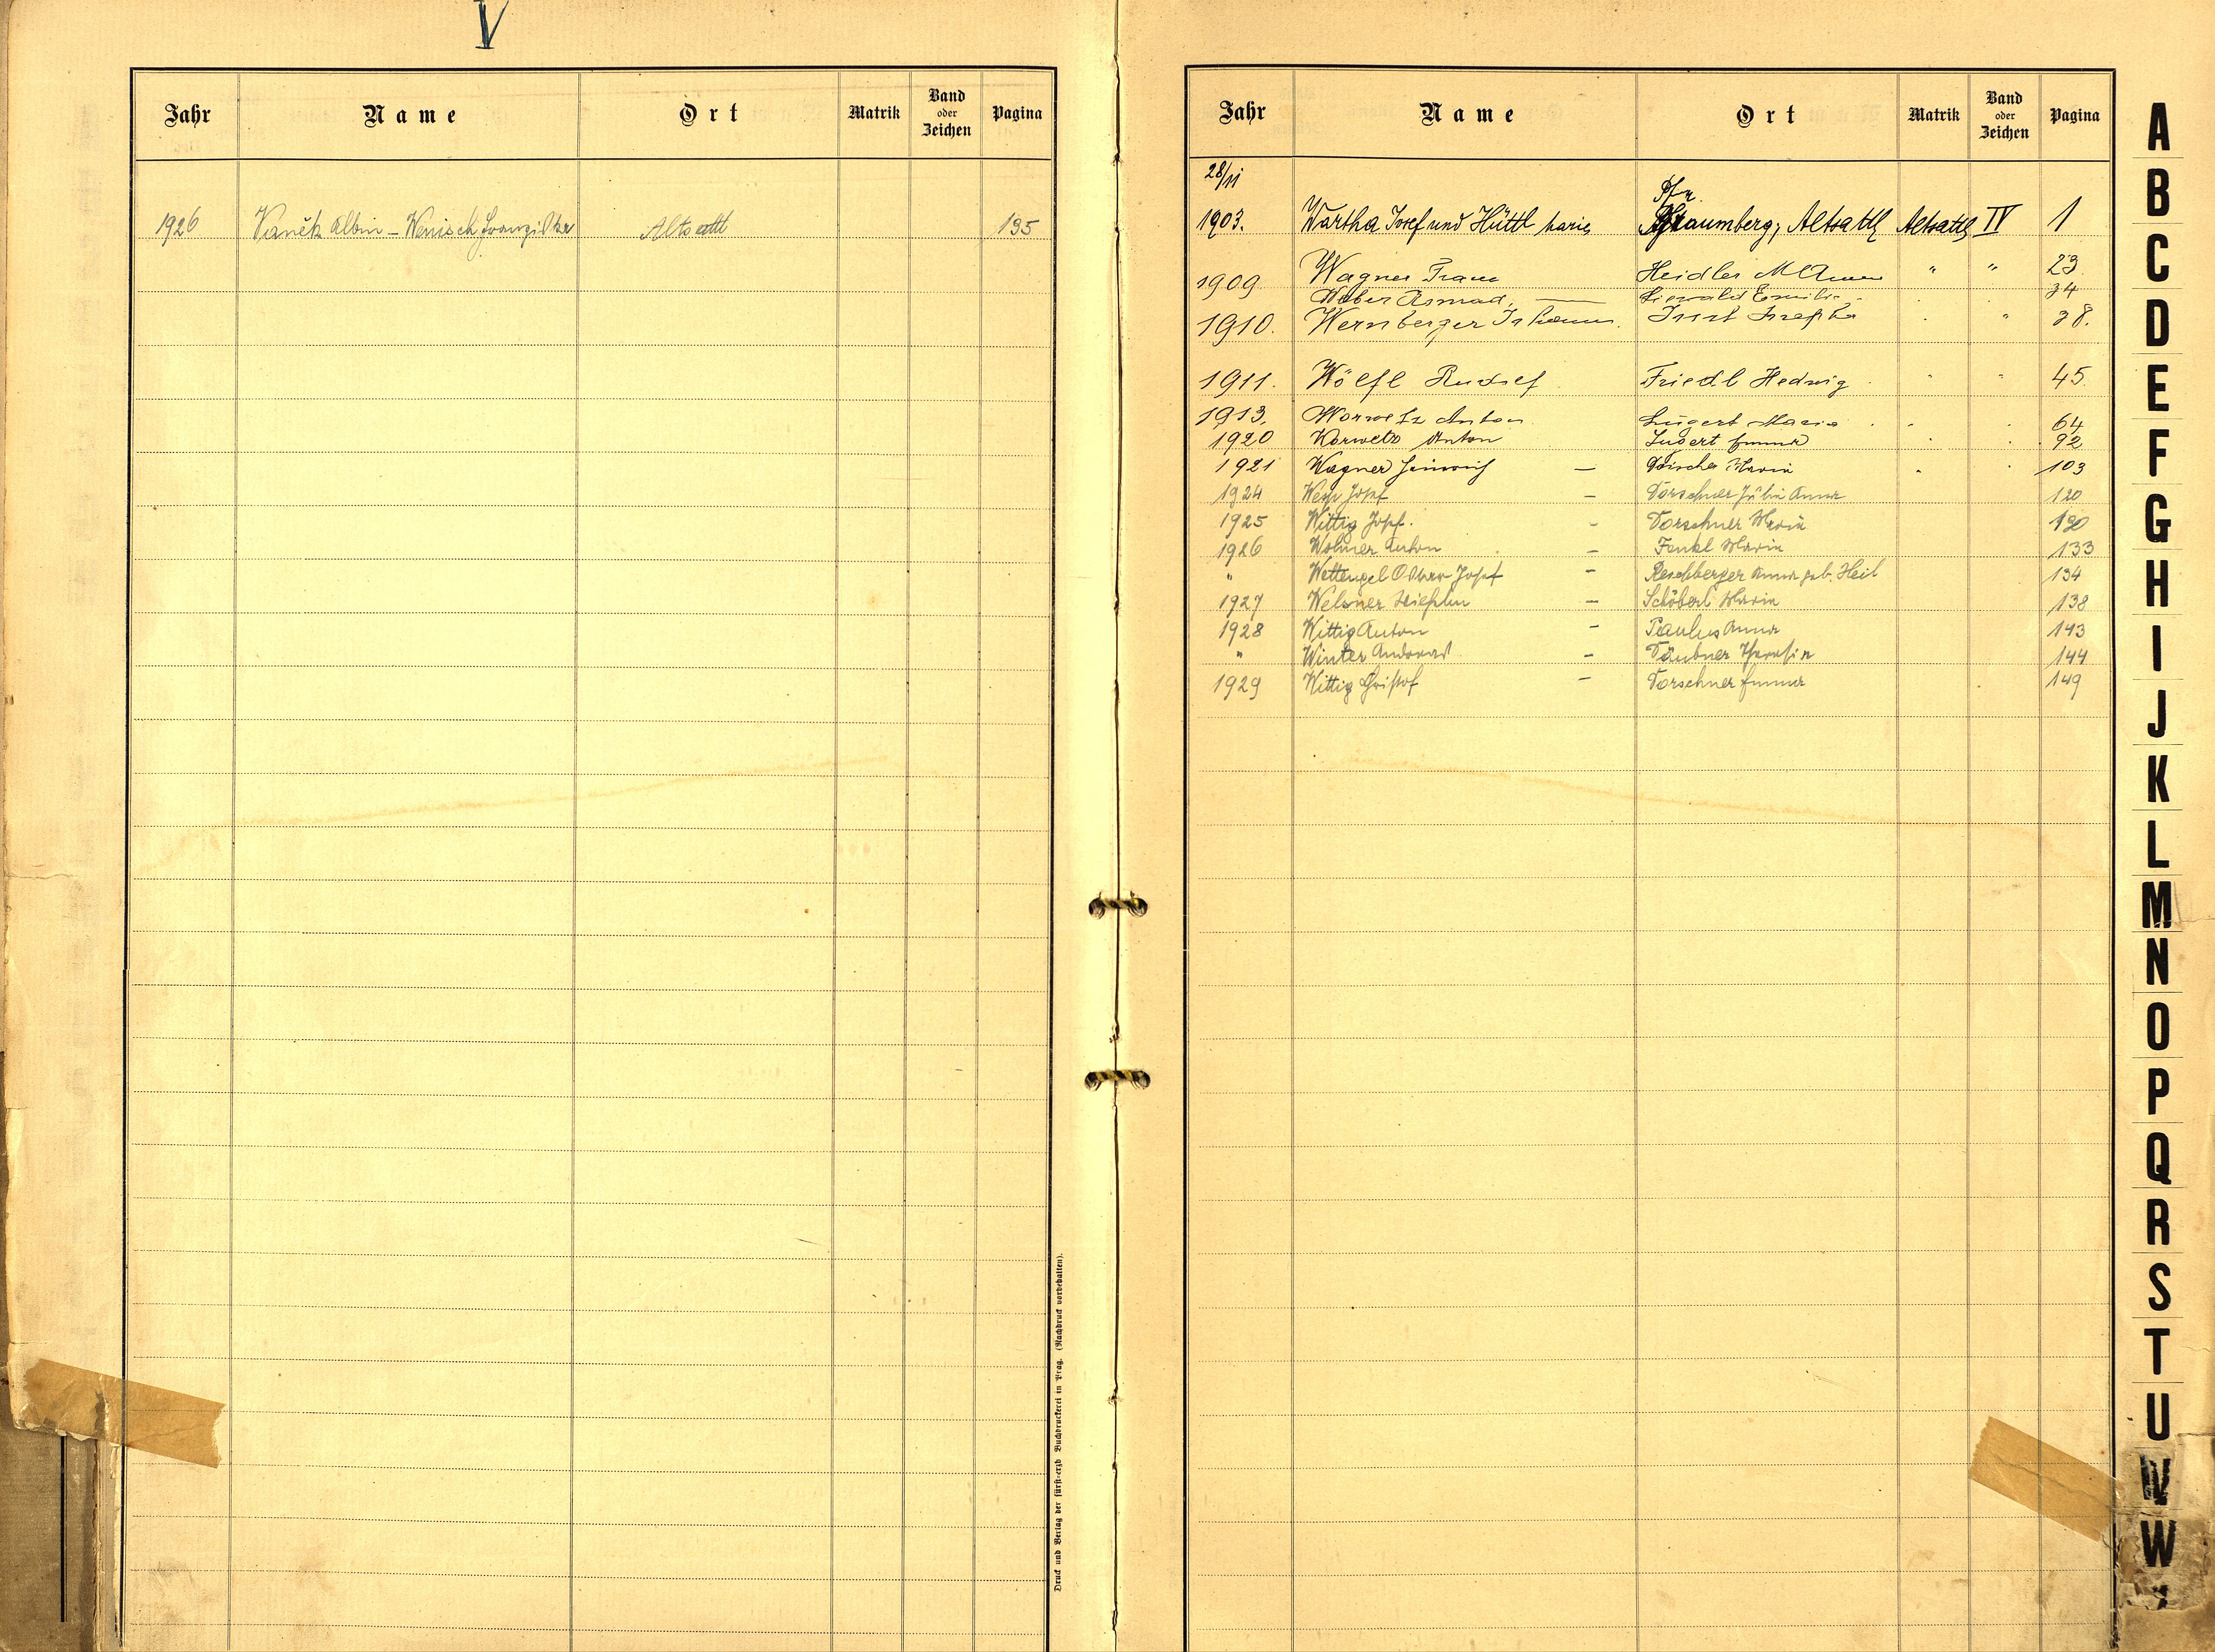 V
Jahr Name Ort Matrik Band oder Zeichen Pagina
1926 Vaněk Albin – Wenisch Franziska Altsattl 135
Druck und Verlag der fürst-erzb Buchdruckerei in Prag. (Nachdruck vorbehalten).
Jahr Name Ort Matrik Band oder Zeichen Pagina
28/11 Pfr.
1903. Wartha Josef und Hüttl Marie Pfraumberg, Altsattl Altsattl IV 1
1909 Wagner Franz Heidler M Anna " " 23.
Weber Konrad, — Emilie 34
1910. Wernberger Johann. Josefa " 38.
1911. Wölfl Rudolf Friedl Hedwig " " 45.
1913. Worwetz Anton Lugert Maria 64
1920 Worwetz Anton Lugert Emma 92
1921 Wagner Heinrich – Maria 103
1924 Josef – Dorschner Julie Anna 120
1925 Wittig Josef. – Dorschner Maria 130
1926 Wolner Anton – Fenkl Maria 133
" Wettengel Oskar Josef – Reschberger Anna geb. Heil 134
1927 Welsner – Schöberl Maria 138
1928 Wittig Anton – Paulus Anna 143
" Winter Andreas – Täubner Theresia 144
1929 Wittig Christof – Dorschner Emma 149
A
B
C
D
E
F
G
H
I
J
K
L
M
N
O
P
Q
R
S
T
U
V
W